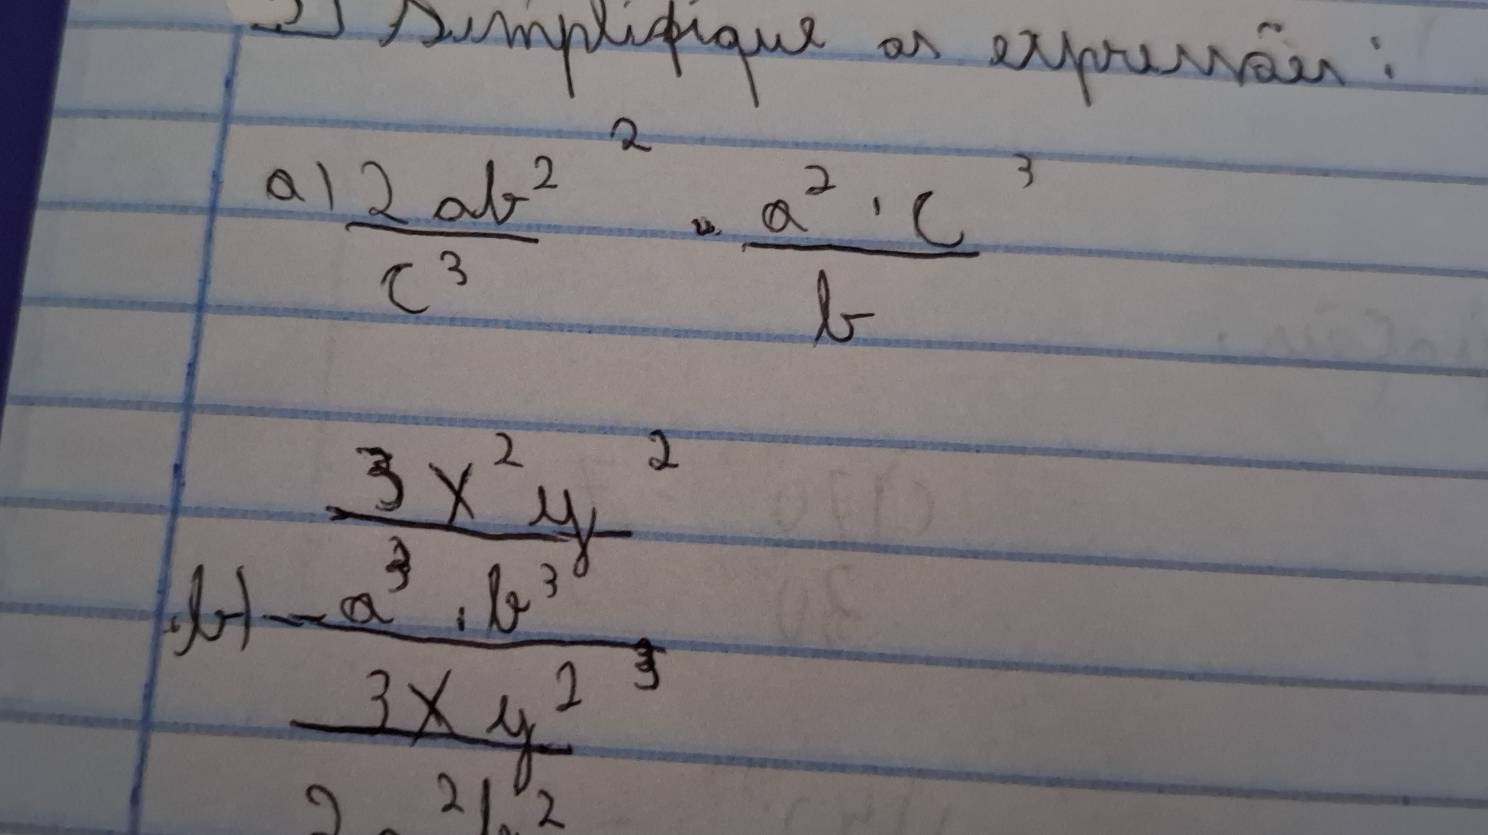 2) Simplifique as expressões:
a) 2ab² ² · a² · c ³
c³ b
3x²y ²
b) a³ · b³
3xy² ³
2a²b²